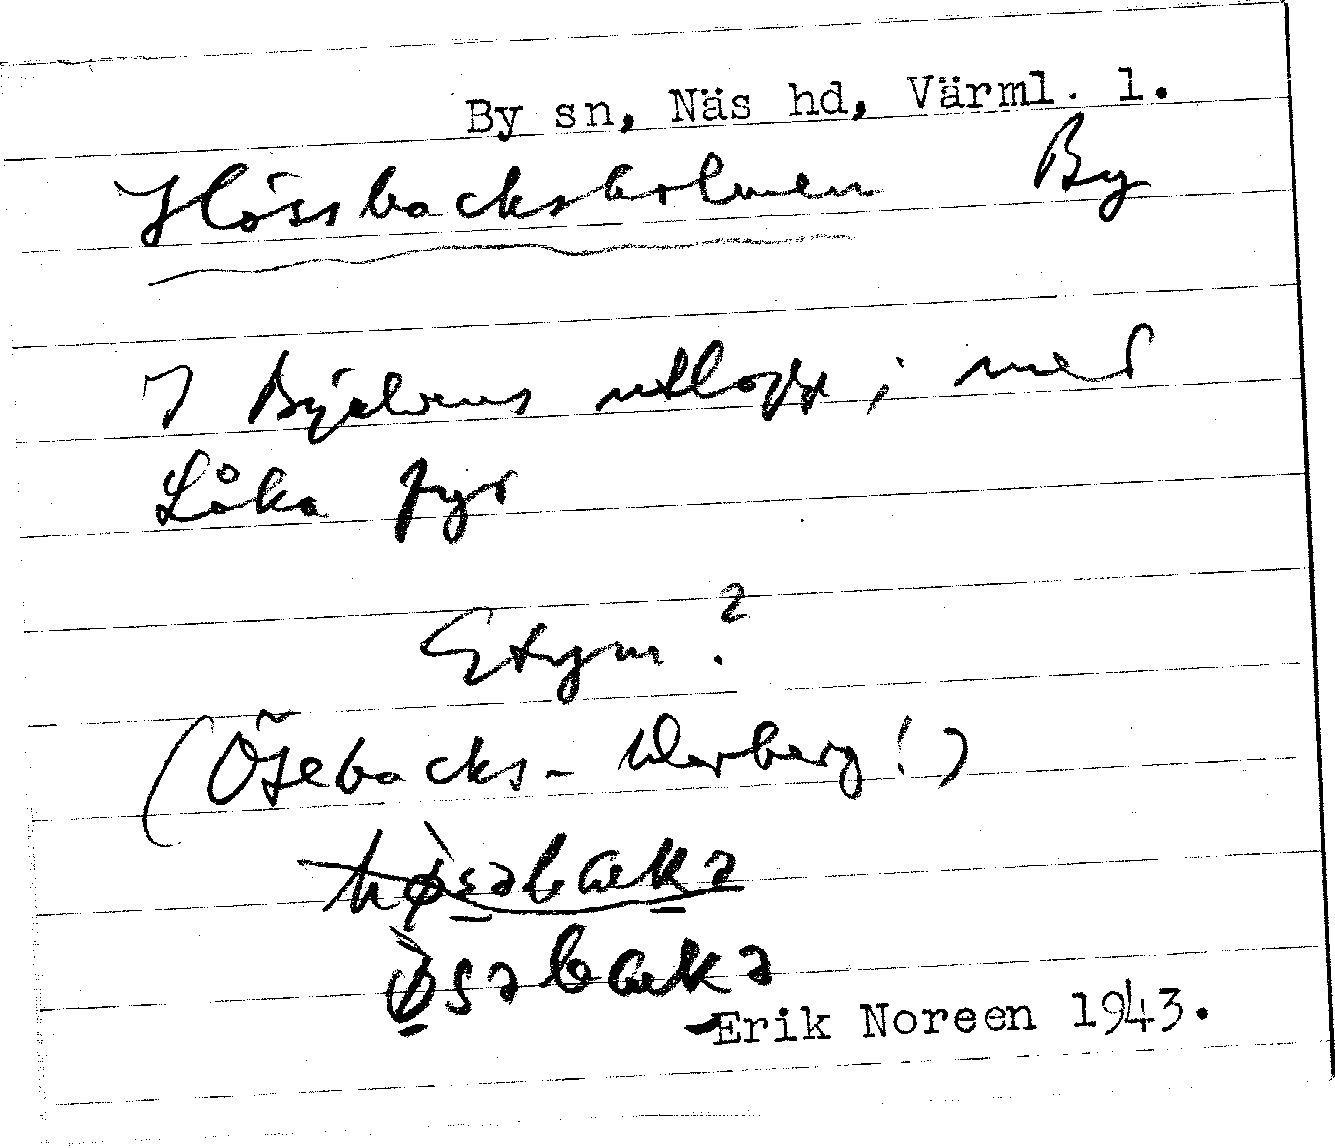 By sn, Näs hd, Värml. l.
Hössbacksholmen By
I Byälvens utlopp; med
Låka fyr
Etym?
(Ösebacks- Warberg!)
høsabaka
øsabaka
Erik Noreen 1943.